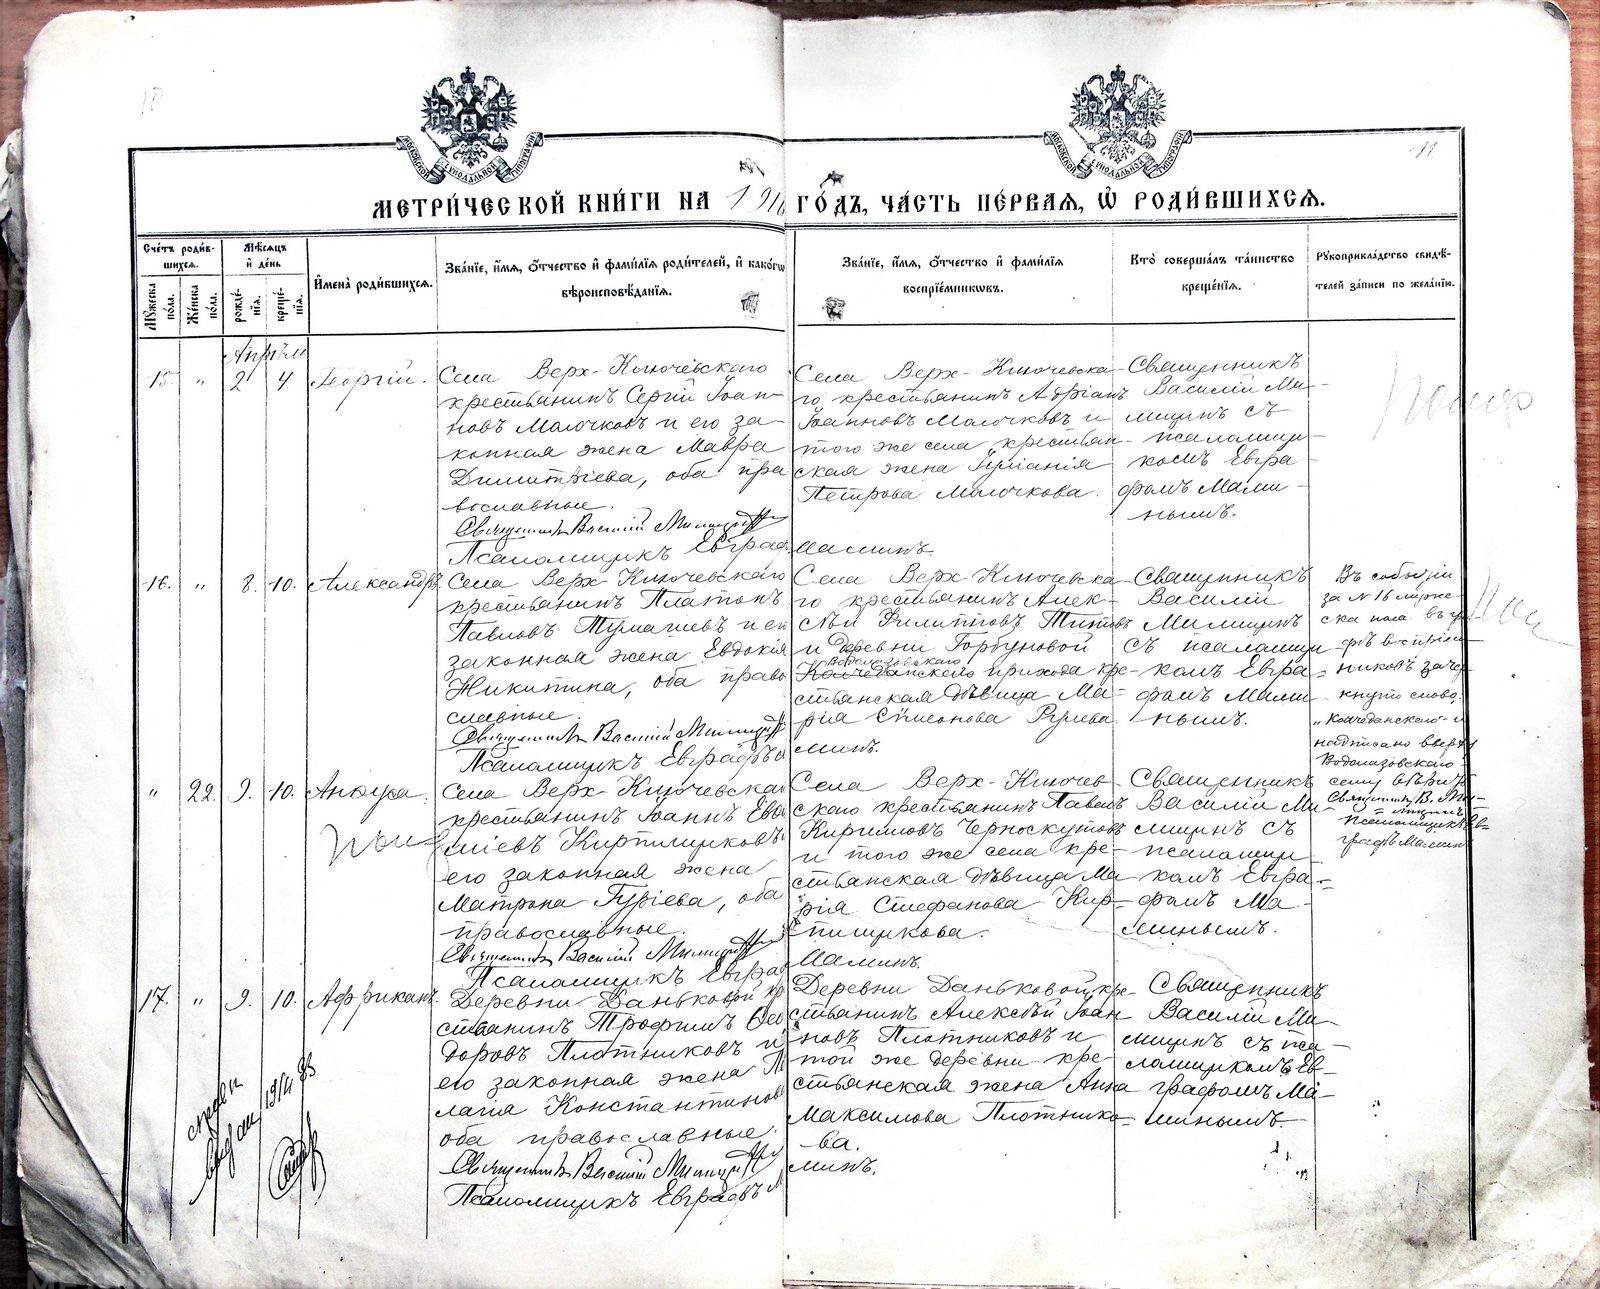 МОСКОВСКОЙ СѴНОДАЛЬНОЙ ТИПОГРАФІИ
МОСКОВСКОЙ СѴНОДАЛЬНОЙ ТИПОГРАФІИ
11
МЕТРИ́ЧЕСКОЙ КНИ́ГИ НА 1916 ГО́ДЪ, ЧА́СТЬ ПЕ́РВАЯ, Ѡ҆ РОДИ́ВШИХСЯ.
Сче́тъ роди́в-
шихся.
Мꙋ́жеска по́ла.
Же́нска по́ла.
Мѣ́сяцъ
и҆ де́нь
рожде́-
нїя.
креще́-
нїя.
И҆мена̀ роди́вшихся.
Зва́нїе, и҆́мя, ѻ҆́тчество и҆ фами́лїя роди́телей, и҆ како́гѡ
вѣроисповѣ́данїя.
Зва́нїе, и҆́мя, ѻ҆́тчество и҆ фами́лїя
воспрїе́мникѡвъ.
Кто̀ соверша́лъ та́инство
креще́нїя.
Рꙋкоприкла́дство свидѣ́-
телей за́писи по жела́нїю.
Апрѣль
15. " 2 4 Георгій.
Села Верх-Ключевскаго
крестьянинъ Сергій Іоан-
новъ Малочковъ и его за-
конная жена Мавра
Димитріева, оба пра
вославные.
Священникъ Василій Милицинъ
Псаломщикъ Евграфъ Маминъ.
Села Верх-Ключевска-
го крестьянинъ Адріанъ
Іоанновъ Малочковъ и
того же села крестьян-
ская жена Іуліанія
Петрова Малочкова.
Священникъ
Василій Ми-
лицинъ съ
псаломщи-
комъ Евгра-
фомъ Мами-
нымъ.
16. " 8. 10. Александръ
Села Верх-Ключевскаго
крестьянинъ Платонъ
Павловъ Тумашевъ и его
законная жена Евдокія
Никитина, оба право
славные.
Священникъ Василій Милицинъ
Псаломщикъ Евграфъ Ма
минъ.
Села Верх-Ключевска-
го крестьянинъ Алек-
сѣй Филипповъ Титовъ
и деревни Горбуновой
Водолазовскаго
Колчеданскаго прихода кре-
стьянская дѣвица Ма-
рія Симеонова
Священникъ
Василій
Милицинъ
съ псаломщи
комъ Евгра-
фомъ Мами
нымъ.
Въ событіи
за № 16 муже-
ска пола въ гра
фѣ воспріем-
никовъ заче-
кнуто слово,
"Колчеданскаго" и
надписано вверху
Водолазовскаго
сему вѣримъ
Священникъ В. Ми-
лицинъ
Псаломщикъ Ев-
графъ Маминъ
" 22. 9. 10. Анфуса.
Села Верх-Ключевскаго
крестьянинъ Іоаннъ Евѳи
міевъ Кирпищиковъ
его законная жена
Матрона Гуріева, оба
православные.
Священникъ Василій Милицинъ
Псаломщикъ Евграфъ
Маминъ.
Села Верх-Ключев-
скаго крестьянинъ Павелъ
Кириловъ Черноскутовъ
и того же села кре-
стьянская дѣвица Ма
рія Стефанова Кир-
пищикова.
Священникъ
Василій Ми-
лицинъ съ
псаломщи-
комъ Евгра-
фомъ Ма-
минымъ.
17. " 9. 10. Африканъ.
Деревни Даньковой кре
стьянинъ Трофимъ Ѳео
доровъ Плотниковъ и
его законная жена Пе
лагія Константинова
оба православные.
Священникъ Василій Милицинъ
Псаломщикъ Евграфъ Ма
минъ.
Деревни Даньковой кре-
стьянинъ Алексѣй Іоан
новъ Плотниковъ и
той же деревни кре-
стьянская жена Анна
Максимова Плотнико-
ва.
Священникъ
Василій Ми-
лицинъ съ пса-
ломщикомъ Ев-
графомъ Ма-
минымъ